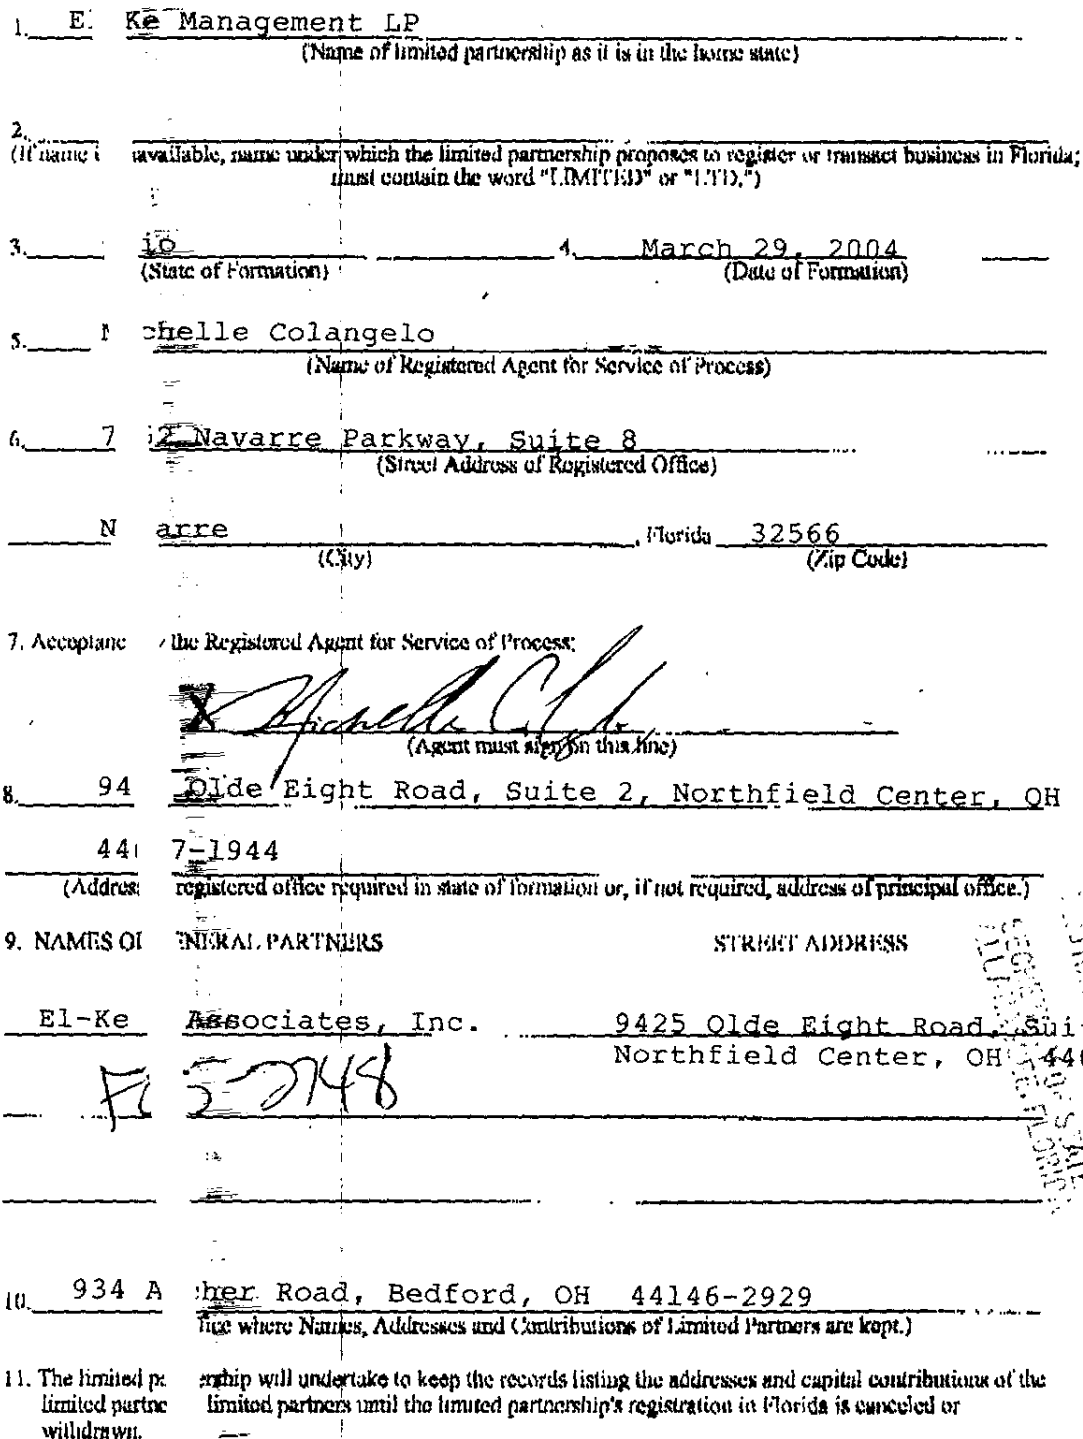 1. E Ke Management LP
(Name of limited partnership as it is in the home state)
2.
(If name i available, name under which the limited partnership proposes to register or transact business in Florida;
must contain the word "LIMITED" or "LTD.")
3. io 4. March 29, 2004
(State of Formation) (Date of Formation)
5. M chelle Colangelo
(Name of Registered Agent for Service of Process)
6. 7 52 Navarre Parkway, Suite 8
(Street Address of Registered Office)
N arre , Florida 32566
(City) (Zip Code)
7. Acceptanc y the Registered Agent for Service of Process:
X Michelle
(Agent must sign on this line)
8. 94 Olde Eight Road, Suite 2, Northfield Center, OH
44 7-1944
(Addres registered office required in state of formation or, if not required, address of principal office.)
9. NAMES OF ENERAL PARTNERS STREET ADDRESS
El-Ke Associates, Inc. 9425 Olde Eight Road, Sui
Northfield Center, OH 44
F 2748
STATE
FLORIDA
10. 934 A cher Road, Bedford, OH 44146-2929
fice where Names, Addresses and Contributions of Limited Partners are kept.)
11. The limited pa ership will undertake to keep the records listing the addresses and capital contributions of the
limited partne limited partners until the limited partnership's registration in Florida is canceled or
withdrawn.